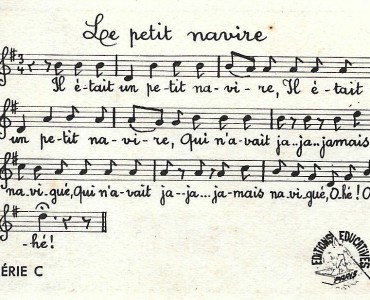 Le petit navire
3
4
Il é-tait un pe-tit na-vi-re, Il é-tait
un pe-tit na-vi-re, Qui n'a-vait ja..ja..jamais
na.vi.gué, Qui n'a-vait ja-ja...ja-mais na.vi.gué, O.hé! O
-hé!
ÉRIE C
EDITIONS EDUCATIVES
PARIS